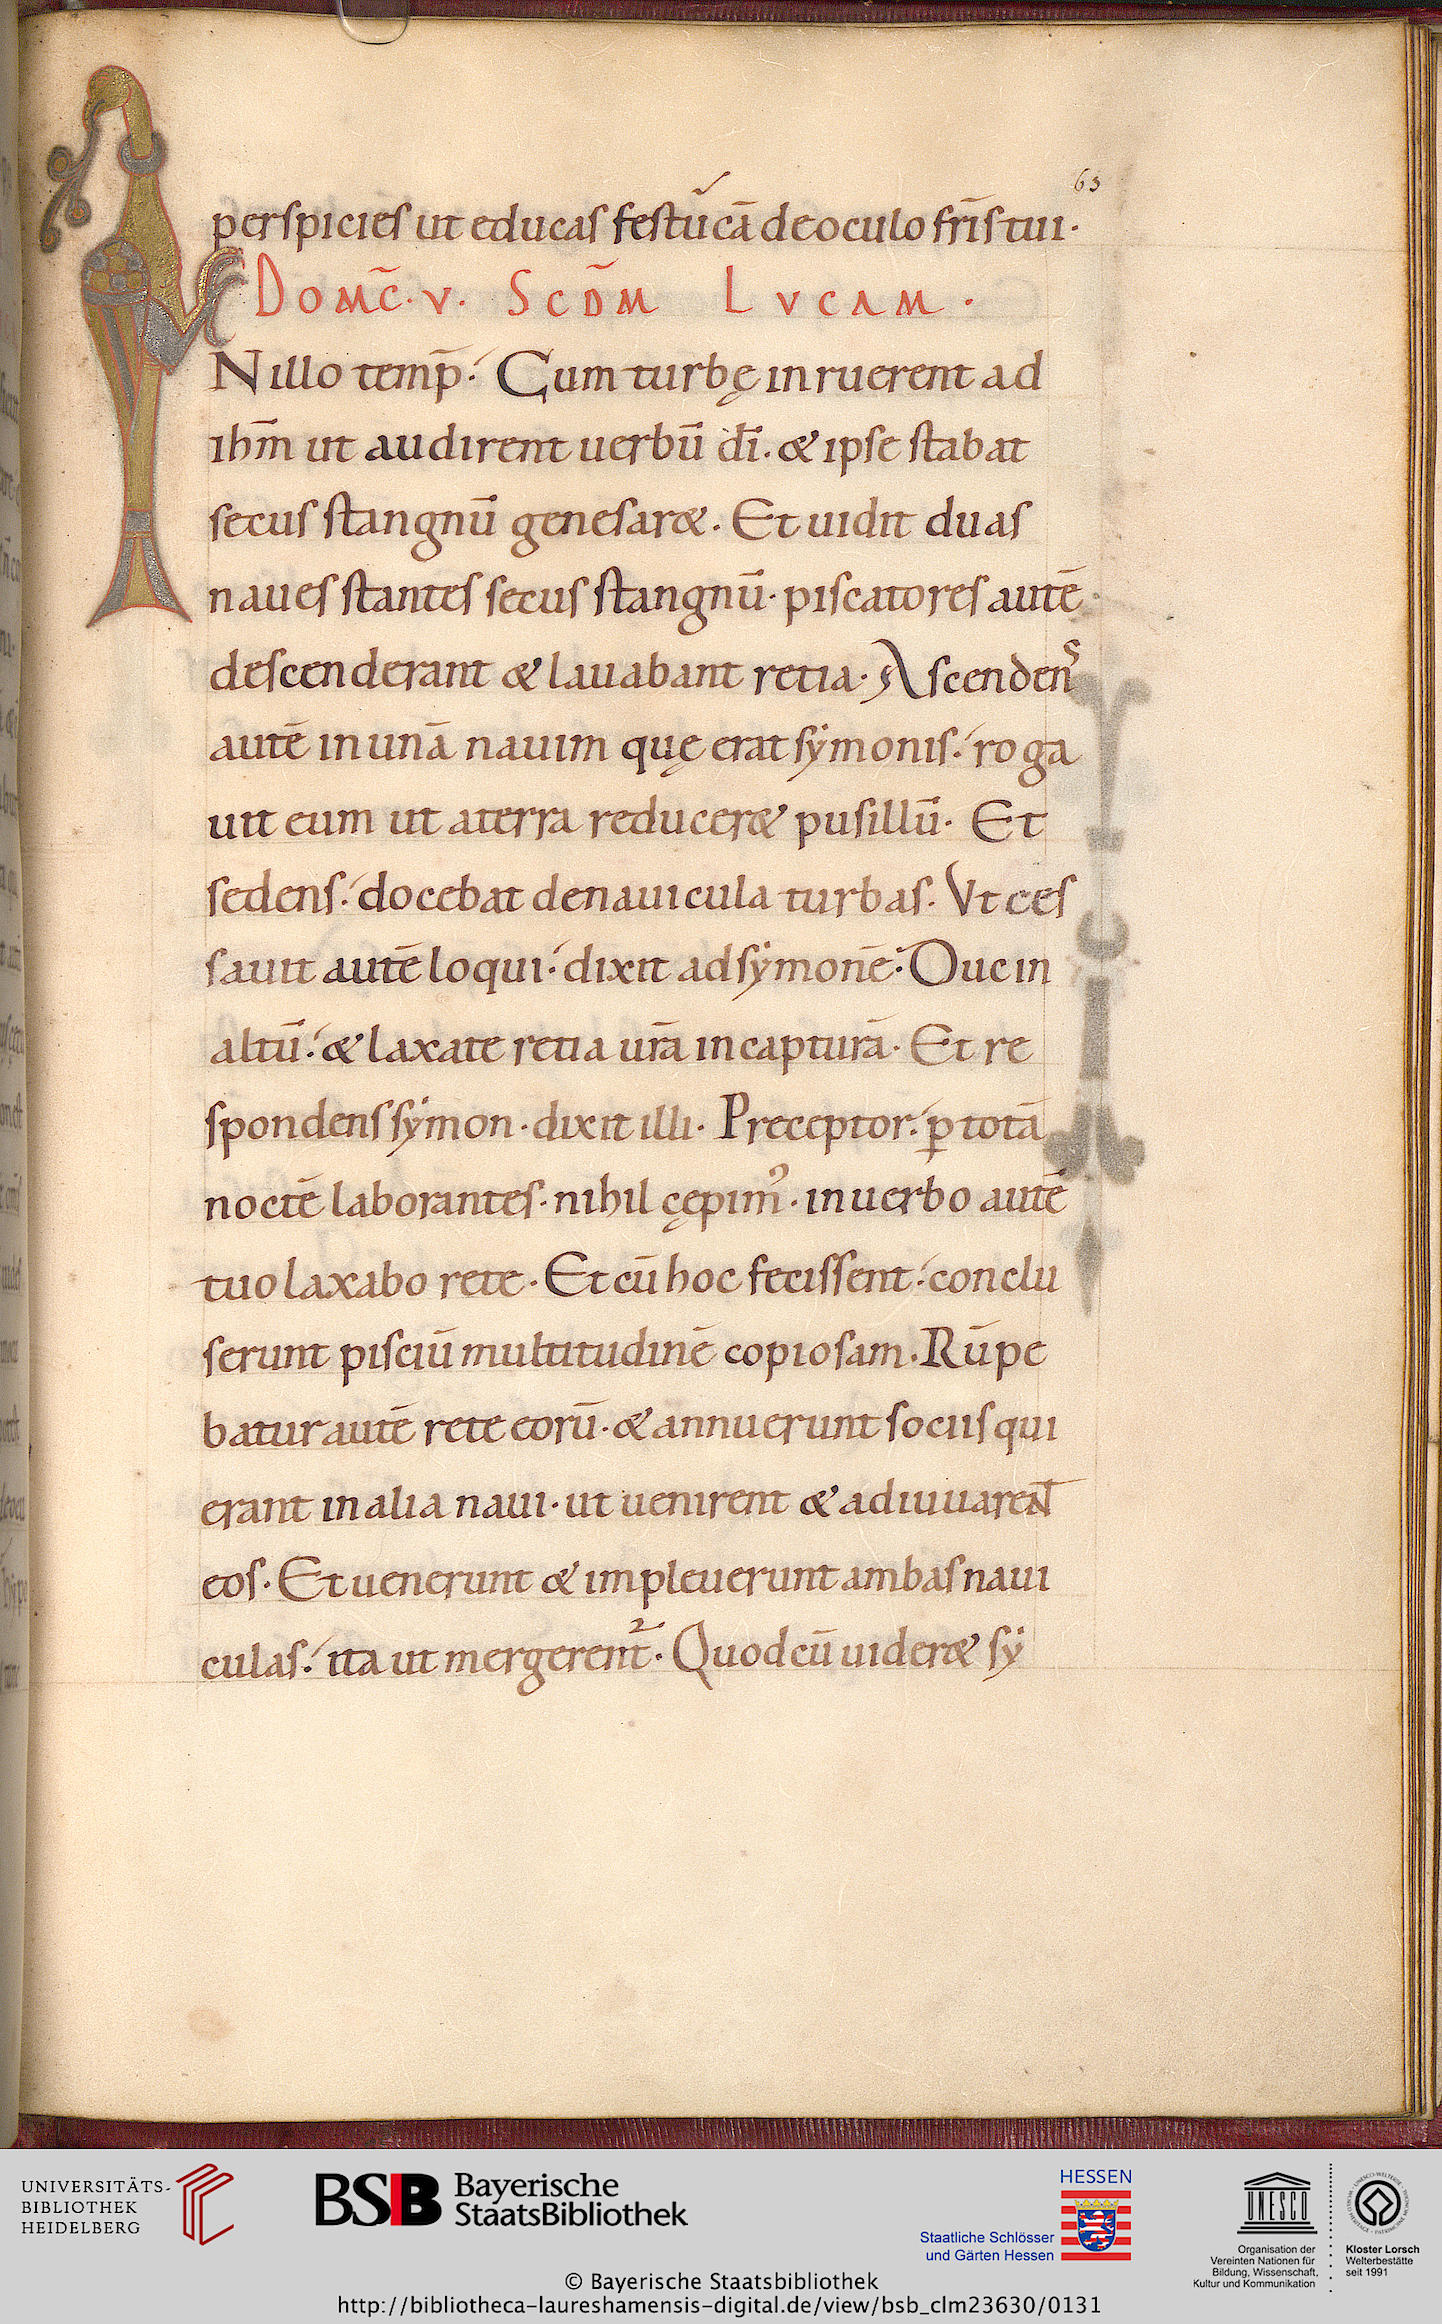 63
perspicies ut educas festucā de oculo fr̄is tui·
DOMC̄· V· SCD̄M LVCAM·
IN illo temp̄· Cum turbę inruerent ad
ihm̄ ut audirent uerbū dī· & ipse stabat
secus stangnū genesar&· Et uidit duas
naues stantes secus stangnū· piscatores autē
descenderant & lauabant retia· Ascendens
autē in unā nauim quę erat sẏmonis· roga
uit eum ut a terra reducer& pusillū· Et
sedens· docebat de nauicula turbas· Vt ces
sauit autē loqui· dixit ad sẏmonē· Duc in
altū· & laxate retia ur̄a in capturā· Et re
spondens sẏmon· dixit illi· Preceptor· ꝑ totā
noctē laborantes· nihil cępim᾿· in uerbo autē
tuo laxabo rete· Et cū hoc fecissent· conclu
serunt pisciū multitudinē copiosam· Rūpe
batur autē rete eorū· & annuerunt sociis qui
erant in alia naui· ut uenirent & adiuuarent
eos· Et uenerunt & impleuerunt ambas naui
culas· ita ut mergerent᷑· Quod cū uider& sẏ
UNIVERSITÄTS-
BIBLIOTHEK
HEIDELBERG
BSB Bayerische
StaatsBibliothek
HESSEN
Staatliche Schlösser
und Gärten Hessen
UNESCO
Organisation der
Vereinten Nationen für
Bildung, Wissenschaft,
Kultur und Kommunikation
Kloster Lorsch
Welterbestätte
seit 1991
© Bayerische Staatsbibliothek
http://bibliotheca-laureshamensis-digital.de/view/bsb_clm23630/0131